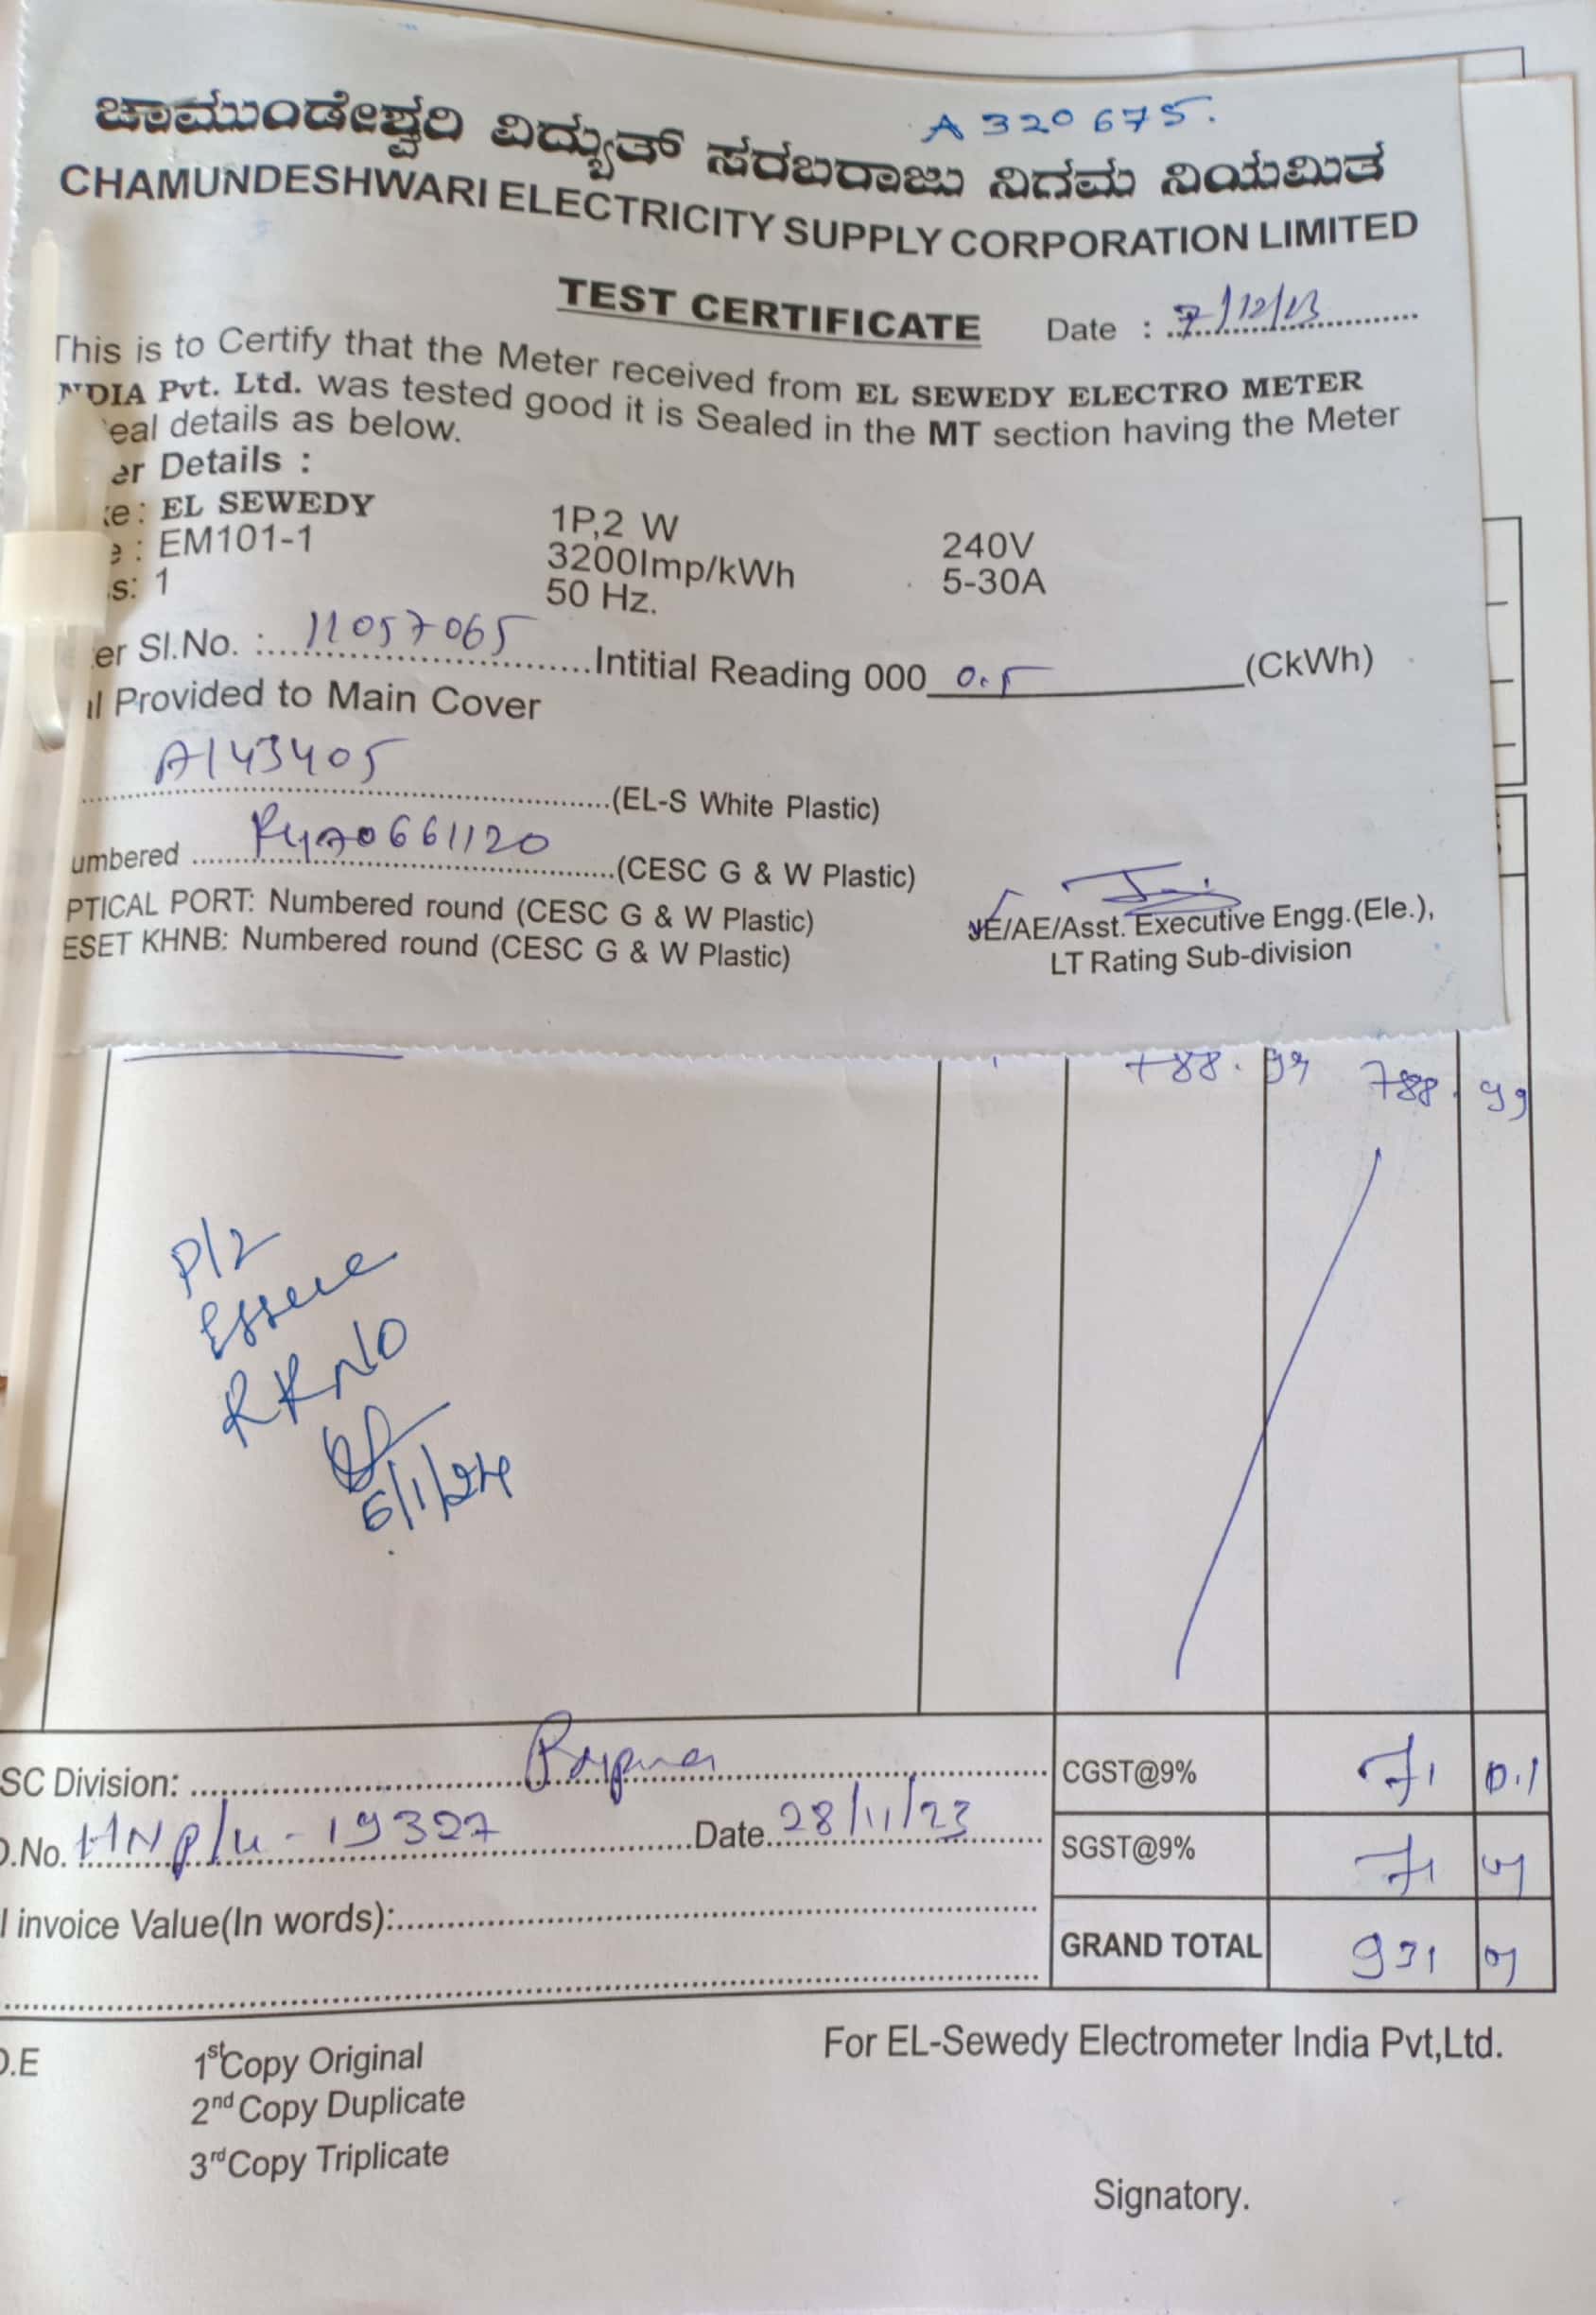 A 320675.
ಚಾಮುಂಡೇಶ್ವರಿ ವಿದ್ಯುತ್ ಸರಬರಾಜು ನಿಗಮ ನಿಯಮಿತ
CHAMUNDESHWARI ELECTRICITY SUPPLY CORPORATION LIMITED
TEST CERTIFICATE Date : 7/12/23
This is to Certify that the Meter received from EL SEWEDY ELECTRO METER
NDIA Pvt. Ltd. was tested good it is Sealed in the MT section having the Meter
eal details as below.
er Details :
ke: EL SEWEDY 1P,2 W 240V
e : EM101-1 3200Imp/kWh 5-30A
s: 1 50 Hz.
er Sl.No. : 11057065 Intitial Reading 000 0.5 (CkWh)
al Provided to Main Cover
A143405 (EL-S White Plastic)
umbered (CESC G & W Plastic)
PTICAL PORT: Numbered round (CESC G & W Plastic)
ESET KHNB: Numbered round (CESC G & W Plastic)
JE/AE/Asst. Executive Engg.(Ele.),
LT Rating Sub-division
788.99 788.99
P/2
RRNO
6/1/24
SC Division:
O.No. 19327 Date 28/11/23
l invoice Value(In words):
CGST@9% 71 01
SGST@9% 71 01
GRAND TOTAL 931 01
O.E
1st Copy Original
2nd Copy Duplicate
3rd Copy Triplicate
For EL-Sewedy Electrometer India Pvt,Ltd.
Signatory.